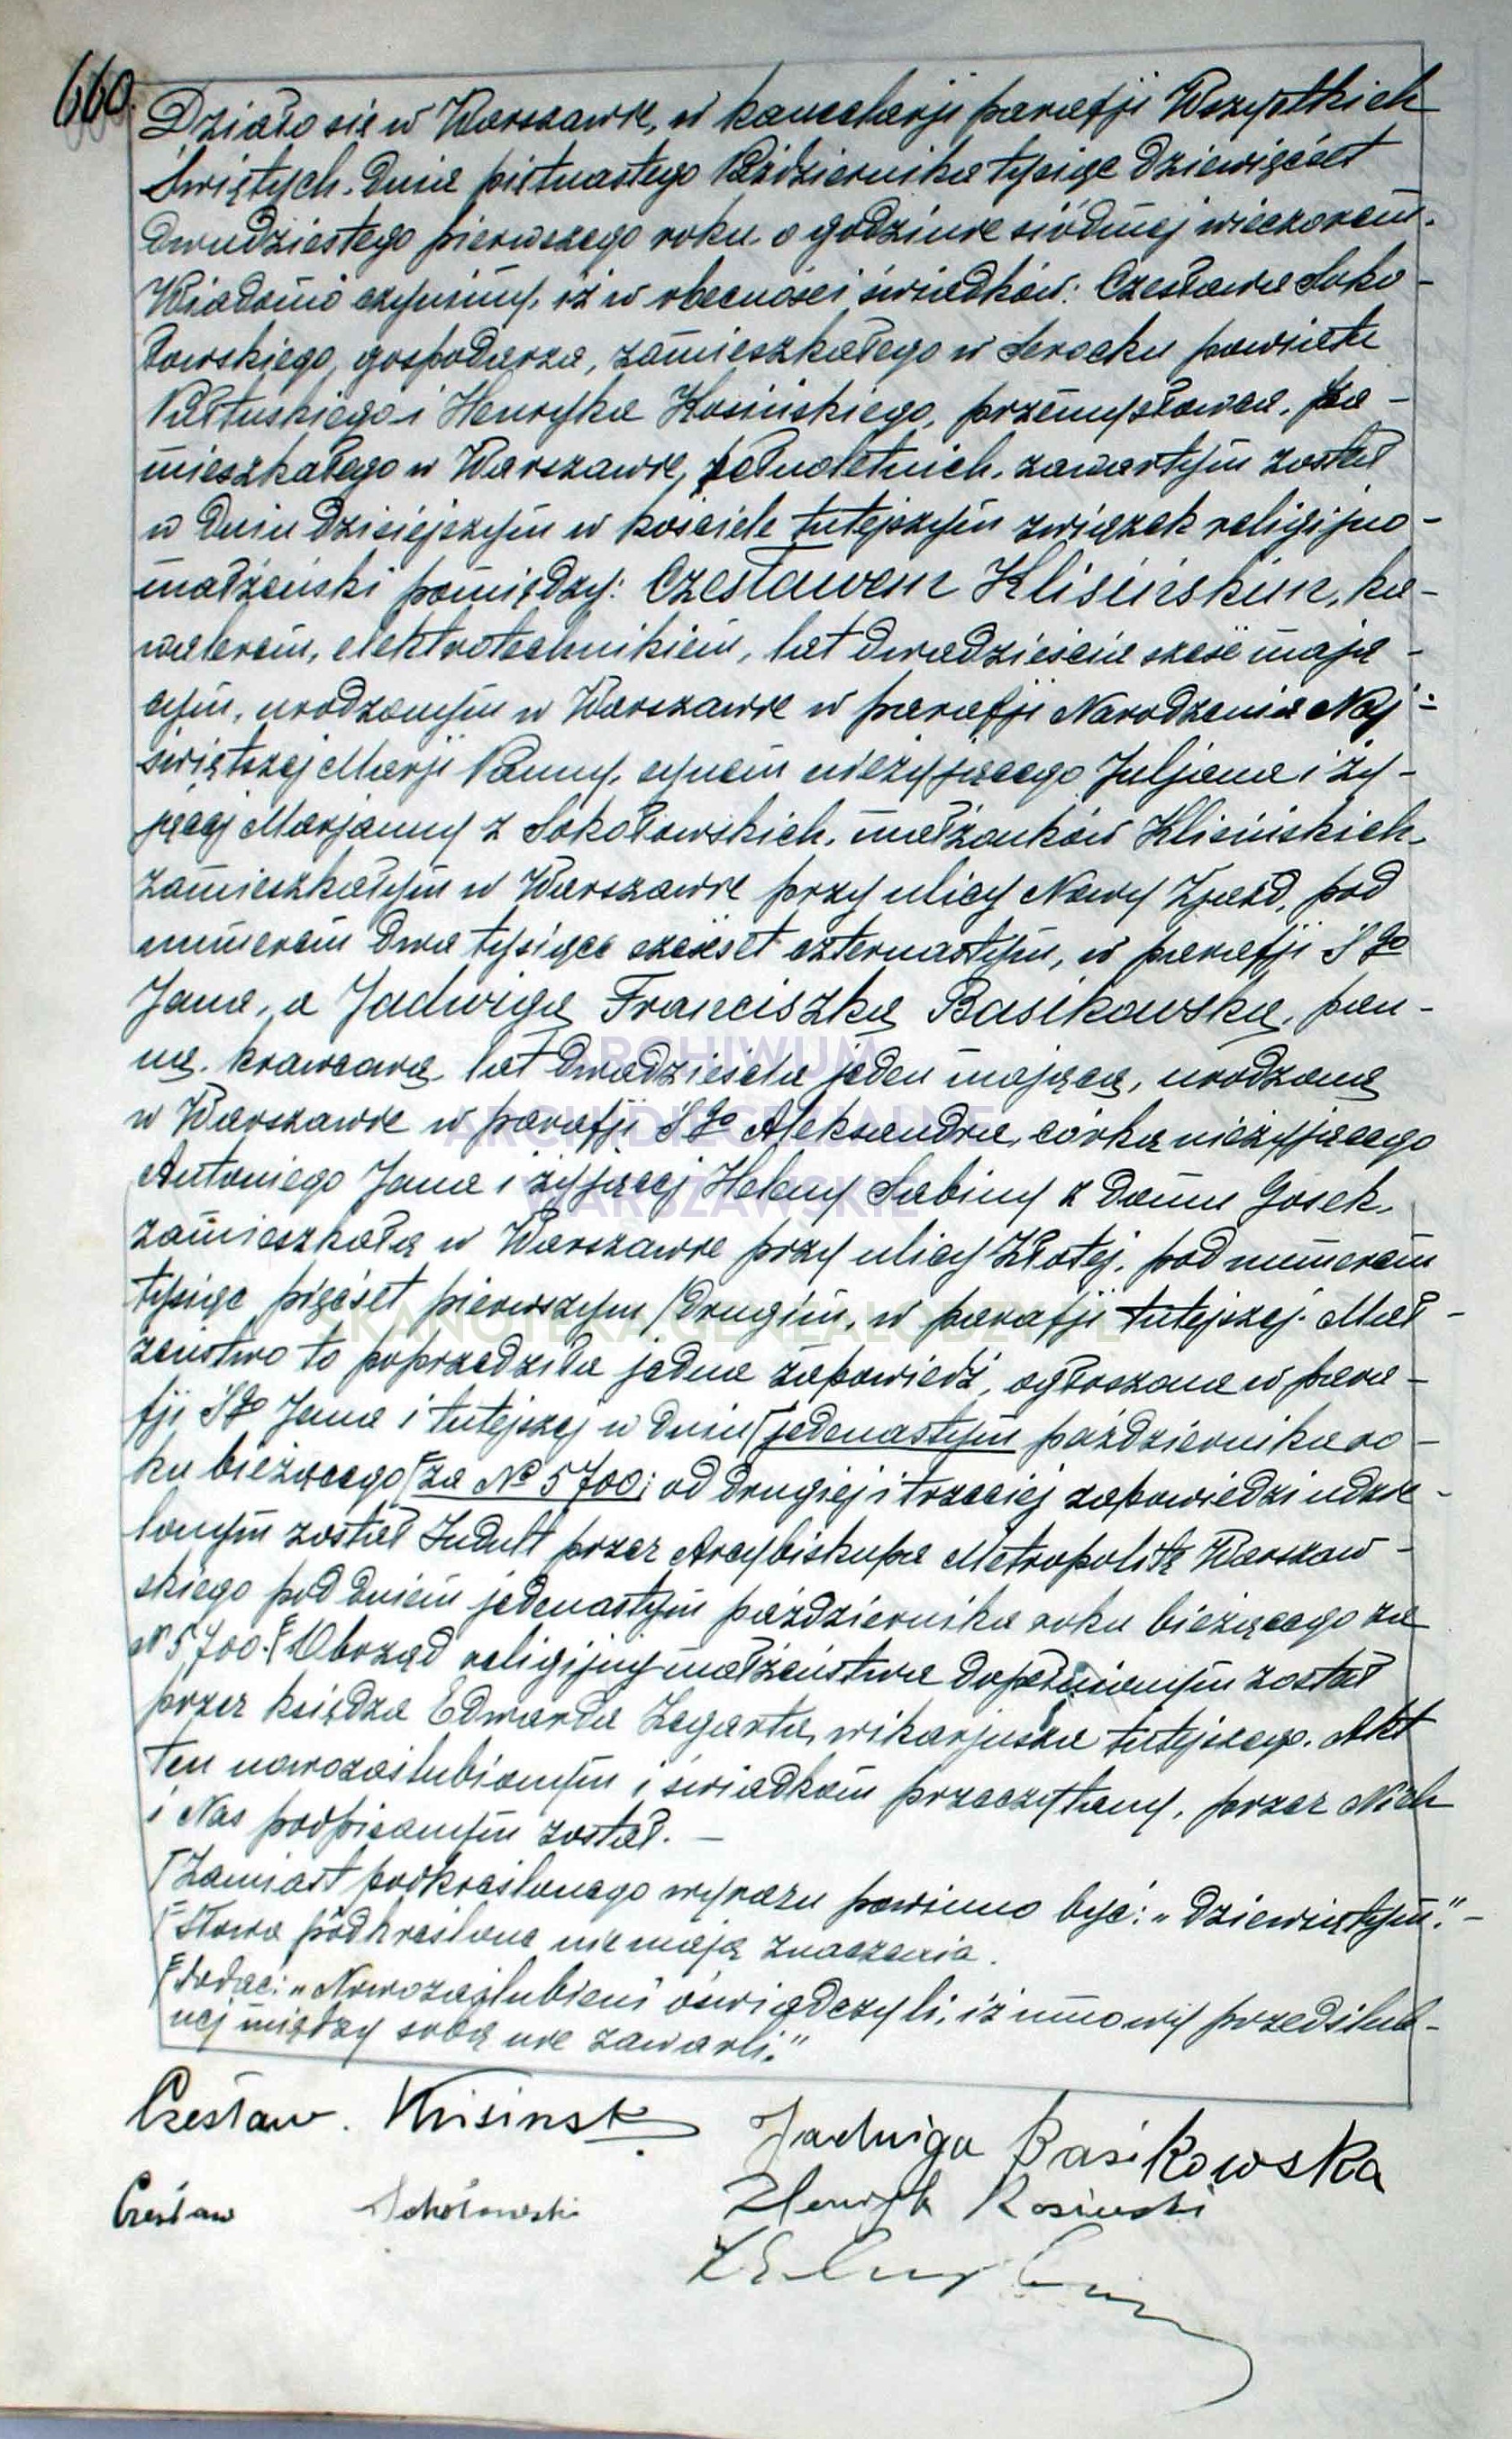 660.
Działo się w Warszawie, w kancelarji parafji Wszystkich
Świętych, dnia piętnastego Października tysiąc dziewięćset
dwudziestego pierwszego roku, o godzinie siódmej wieczorem.
Wiadomo czynimy, iż w obecności świadków: Czesława Soko-
łowskiego, gospodarza, zamieszkałego w Serocku powiatu
Pułtuskiego i Henryka Kosińskiego, przemysłowca, za-
mieszkałego w Warszawie, pełnoletnich, zawartym został
w dniu dzisiejszym w kościele tutejszym związek religijno-
małżeński pomiędzy: Czesławem Klisińskim, ka-
walerem, elektrotechnikiem, lat dwadzieścia sześć mają-
cym, urodzonym w Warszawie w parafji Narodzenia Naj-
świętszej Marji Panny, synem nieżyjącego Juljana i ży-
jącej Marjanny z Sokołowskich, małżonków Klisińskich,
zamieszkałym w Warszawie przy ulicy Nowy Zjazd, pod
numerem dwa tysiące sześset czternastym, w parafji Sgo
Jana, a Jadwigą Franciszką Basikowską, pan-
ną, krawcową, lat dwadzieścia jeden mającą, urodzoną
w Warszawie w parafji Sgo Aleksandra, córką nieżyjącego
Antoniego Jana i żyjącej Heleny Sabiny z domu Gosek,
zamieszkałą w Warszawie przy ulicy Złotej, pod numerem
tysiąc pięćset pierwszym/drugim, w parafji tutejszej. Mał-
żeństwo to poprzedziła jedna zapowiedź, ogłoszona w para-
fji Sgo Jana i tutejszej w dniu jedenastym października ro-
ku bieżącego za № 5700; od drugiej i trzeciej zapowiedzi udzie-
lonym został Indult przez Arcybiskupa Metropolitę Warszaw-
skiego pod dniem jedenastym października roku bieżącego za
№ 5700. Obrząd religijny małżeństwa dopełnionym został
przez księdza Edwarda Zegarta, wikarjusza tutejszego. Akt
ten nowozaślubionym i świadkom przeczytany, przez Nich
i Nas podpisanym został. —
Zamiast podkreślonego wyrazu powinno być: "dziewiątym". —
Słowa podkreślone nie mają znaczenia.
dodać: "Nowozaślubieni oświadczyli, iż umowy przedślub-
nej między sobą nie zawarli."
Czesław Klisiński Jadwiga Basikowska
Czesław Sokołowski Henryk Kosiński
ARCHIWUM
ARCHIDIECEZJALNE
WARSZAWSKIE
SKANOTEKA.GENEALODZY.PL